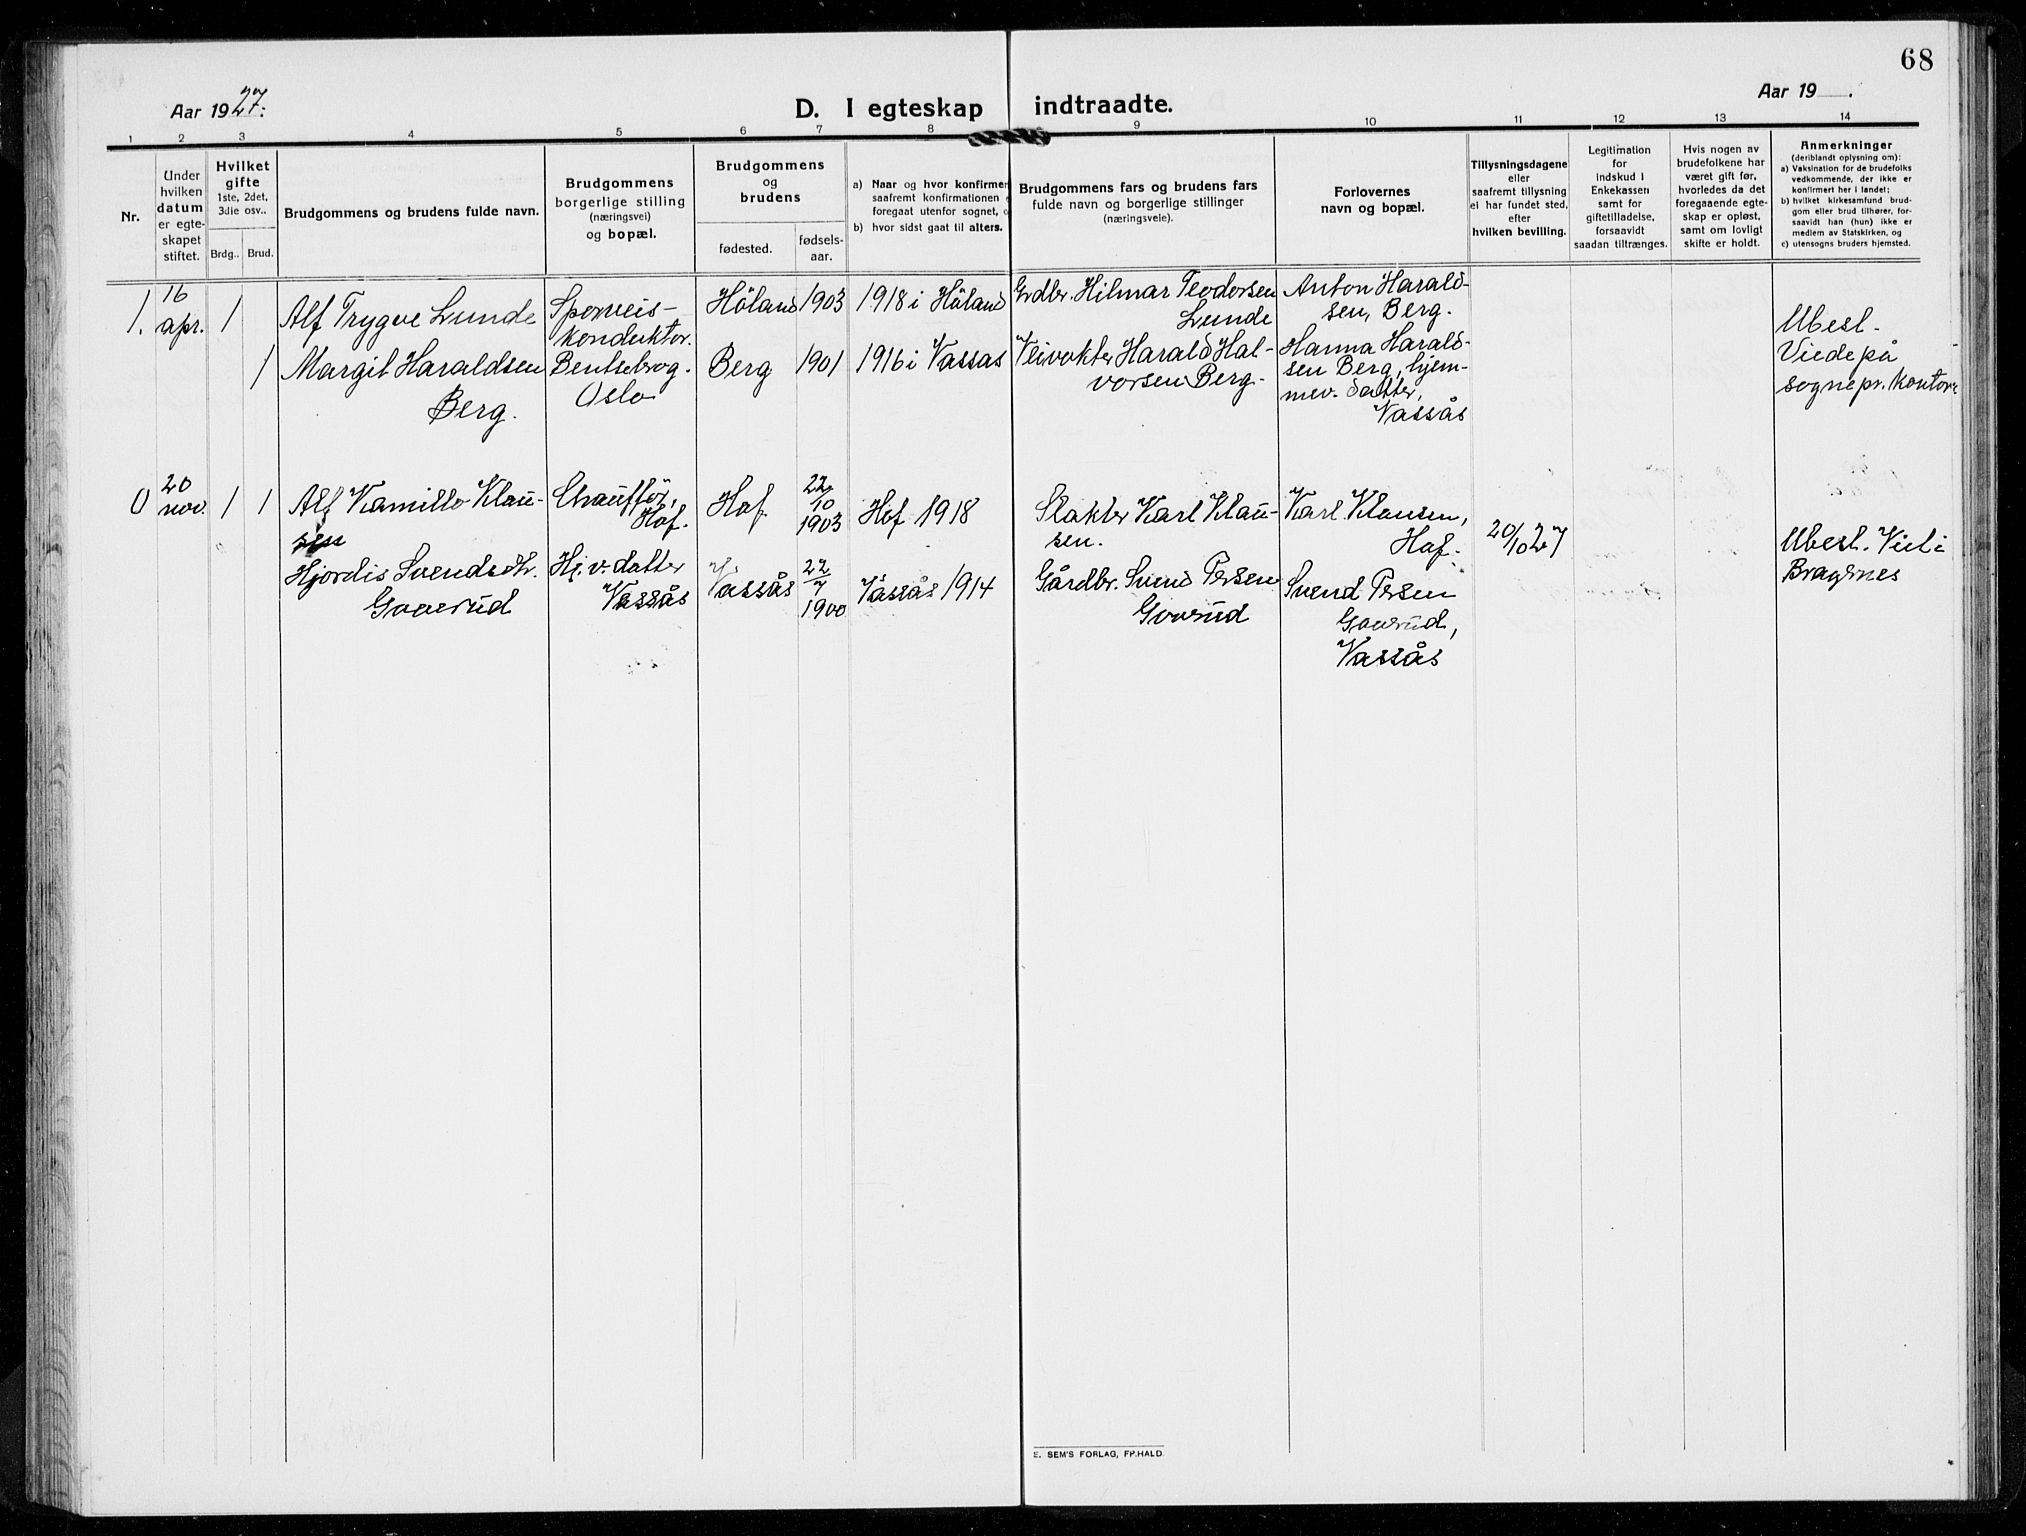 68
Aar 1927.
D. I egteskap indtraadte.
Aar 19 .
1 2 3 4 5 6 7 8 9 10 11 12 13 14
Nr.
Under
hvilken
datum
er egte-
skapet
stiftet.
Hvilket
gifte
1ste, 2det,
3die osv..
Brdg.. Brud.
Brudgommens og brudens fulde navn.
Brudgommens
borgerlige stilling
(næringsvei)
og bopæl.
Brudgommens
og
brudens
fødested.
fødsels-
aar.
a) Naar og hvor konfirmer
saafremt konfirmationen
foregaat utenfor sognet, o
b) hvor sidst gaat til alters.
Brudgommens fars og brudens fars
fulde navn og borgerlige stillinger
(næringsveie).
Forlovernes
navn og bopæl.
Tillysningsdagene
eller
saafremt tillysning
ei har fundet sted,
efter
hvilken bevilling.
Legitimation
for
indskud i
Enkekassen
samt for
giftetilladelse,
forsaavidt
saadan tiltrænges.
Hvis nogen av
brudefolkene har
været gift før,
hvorledes da det
foregaaende egte-
skap er opløst,
samt om lovligt
skifte er holdt.
Anmerkninger
(deriblandt oplysning om):
a) Vaksination for de brudefolks
vedkommende, der ikke er
konfirmert her i landet;
b) hvilket kirkesamfund brud-
gom eller brud tilhører, for-
saavidt han (hun) ikke er
medlem av Statskirken, og
c) utensogns bruders hjemsted.
1.
16
apr.
1
Alf Trygve Lunde
Sporveis-
konduktør.
Höland
1903
1918 i Höland
Grdbr. Hilmar Teodorsen
Lunde
Anton Harald-
sen, Berg.
Ubesl.
Viede på
sognepr. kontor
1
Margit Haraldsen
Berg.
Bentsebrog.
Oslo
Berg
1901
1916 i Vassas
Veivokter Harald Hal-
vorsen Berg.
Hanna Harald-
sen Berg, hjem-
mev. datter,
Vassås
0
20
nov.
1
1
Alf Kamillo Klau-
sen
Chauffør,
Hof.
Hof
22/10
1903
Hof 1918
Slakter Karl Klau-
sen.
Karl Klausen,
Hof.
20/10 27
Ubesl. Viet i
Bragernes
Hjordis Svendsdtr.
Goverud
Hj. v. datter
Vassås
Vassås
22/7
1900
Vassås 1914
Gårdbr. Svend Persen
Goverud
Svend Persen
Goverud,
Vassås
E. SEM'S FORLAG, FR.HALD